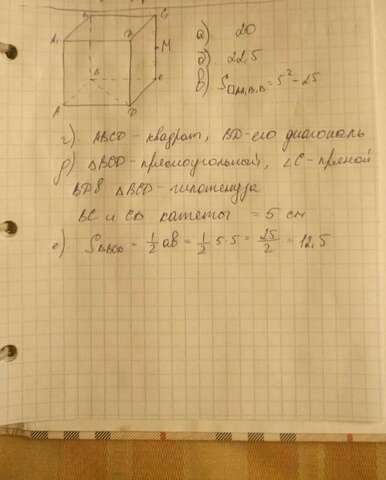 B₁ C₁
A₁ D₁
M
B C
A D
а) 20
б) 22,5
в) S□AA₁B₁B = 5² = 25
г) ABCD - квадрат, BD - его диагональ
д) ΔBCD - прямоугольный, ∠C - прямой
BD в ΔBCD - гипотенуза
BC и CD катеты = 5 см
е) SΔBCD = 1/2 ab = 1/2 5·5 = 25/2 = 12,5